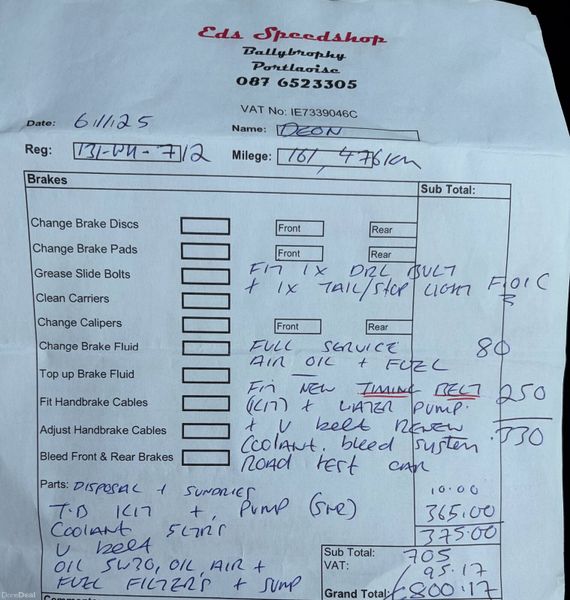 Eds Speedshop
Ballybrophy
Portlaoise
087 6523305
VAT No: IE7339046C
Date: 6/1/25 Name: DEON
Reg: 131-WH-712 Milege: 161,476km
Brakes Sub Total:
Change Brake Discs Front Rear
Change Brake Pads Front Rear
Grease Slide Bolts FIT 1X DRL BULT
+ 1X TAIL/STOP LIGHT F.O.C
Clean Carriers
Change Calipers Front Rear
Change Brake Fluid FULL SERVICE 80
AIR OIL + FUEL
Top up Brake Fluid
FIT NEW TIMING BELT 250
Fit Handbrake Cables (KIT) + WATER PUMP.
Adjust Handbrake Cables + V belt RENEW 330
COOLANT. bleed system
Bleed Front & Rear Brakes ROAD TEST CAR
Parts: DISPOSAL + SUNDRIES 10.00
T.B KIT +, PUMP 365.00
COOLANT 5LTRS 375.00
V belt
OIL 5W30, OIL, AIR +
FUEL FILTERS + SUMP
Sub Total: 705
VAT: 95.17
Grand Total: €800.17
DoneDeal